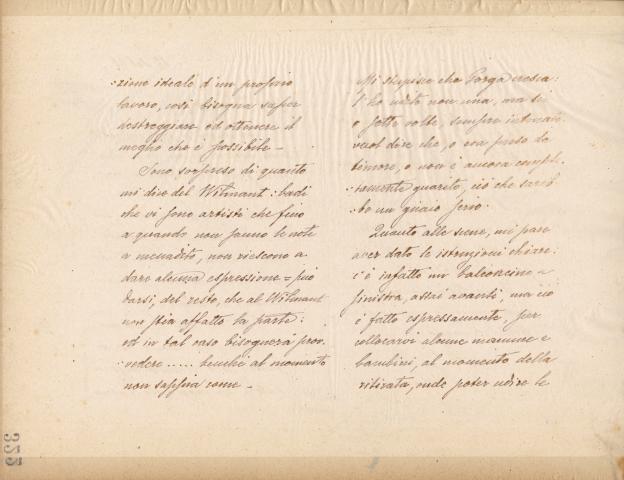 :zione ideale d'un proprio
lavoro, così bisogna saper
destreggiare ed ottenere il
meglio che è possibile –
Sono sorpreso di quanto
mi dice del Wilmant: badi
che vi sono artisti che fino
a quando non sanno le note
a menadito, non riescono a
dare alcuna espressione = può
darsi, del resto, che al Wilmant
non stia affatto la parte:
ed in tal caso bisognerà prov:
:vedere ..... benché al momento
non sappia come –
Mi stupisce che Borga cresca:
l'ho udito non una, ma sei
o sette volte, sempre intonato:
vuol dire che, o era preso da
timore, o non è ancora compl:
:tamente guarito, ciò che sareb
:be un guaio serio.
Quanto alle scene, mi pare
aver dato le istruzioni chiare:
c'è infatto un balconcino a
sinistra, assai avanti, ma ciò
è fatto espressamente, per
collocarvi alcune mamme e
bambini, al momento della
ritirata, onde poter udire le
325